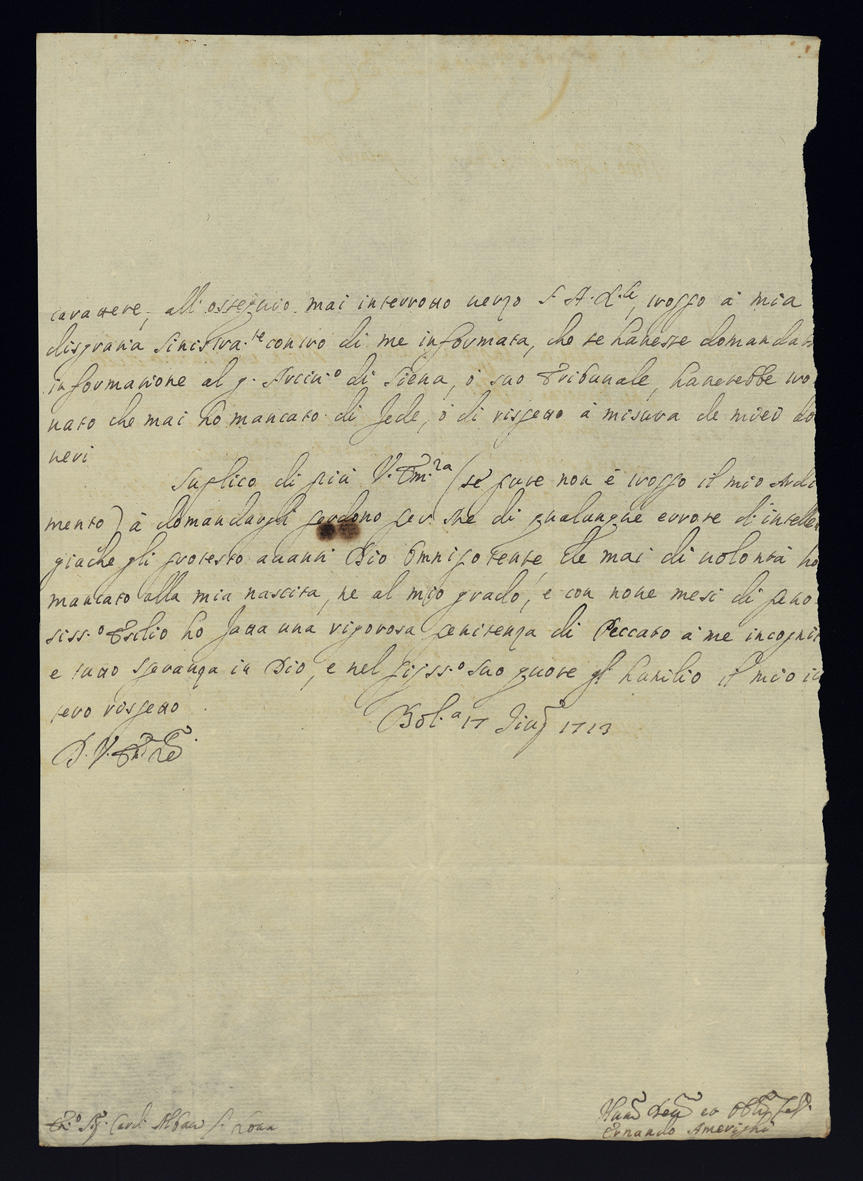 carattere, all'ossequio mai interrotto verso S. A. R.le, troppo à mia
disgratia sinistra.te contro di me informata, che se havesse domandat
informatione al g. Arciu.o di Siena, ó suo Tribunale, haverebbe tro
vato che mai hò mancato di fede, ó di rispetto à misura de miei do
veri
Suplico di più V. Em.za (se pure non è troppo il mio Ardi
mento) à domandargli perdono per me di qualunque errore d'intelle
giache gli protesto avanti Dio Omnipotente che mai di volontà ho
mancato alla mia nascita, ne al mio grado, e con nove mesi di peno
siss.o Esilio ho fatta una rigorosa penitenza di Peccato à me incognit
e tutto speranza in Dio, e nel piiss.o suo quore gl'humilio il mio in
tero rispetto
Bol.a 17 Giug 1713
D. V. Em.za
Em.o Sig. Card. Albani Roma
Hum Dev et Obblig
Ernando Amerighi